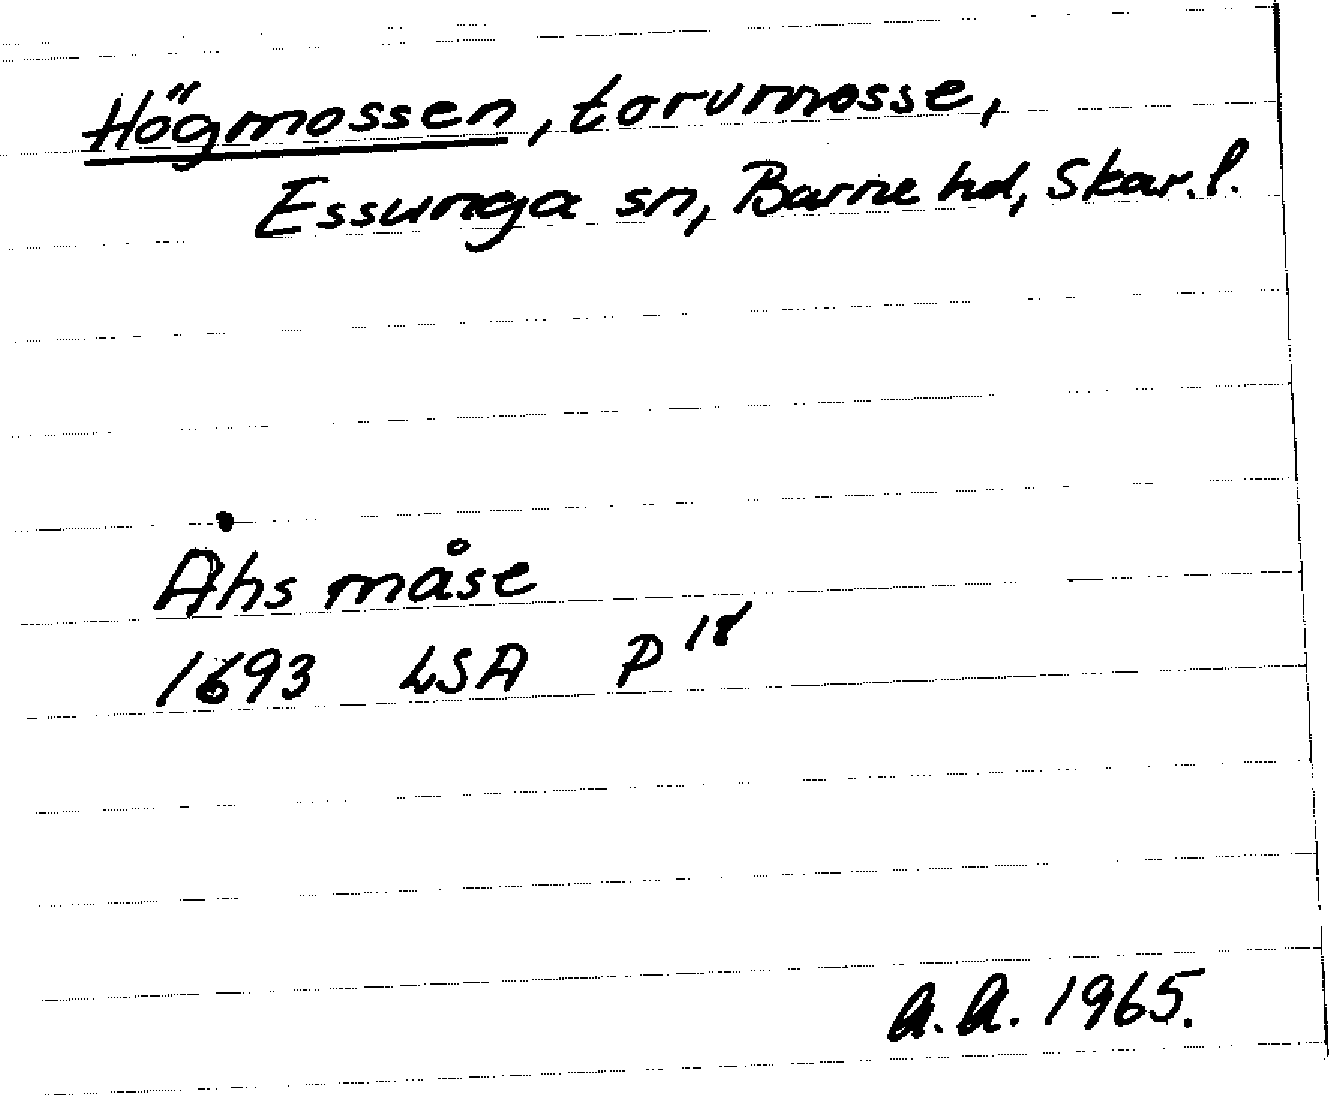 Högmossen, torvmosse,
Essunga sn, Barne hd, Skar. l.
Åhs måse
1693 LSA P¹⁸
A.A. 1965.